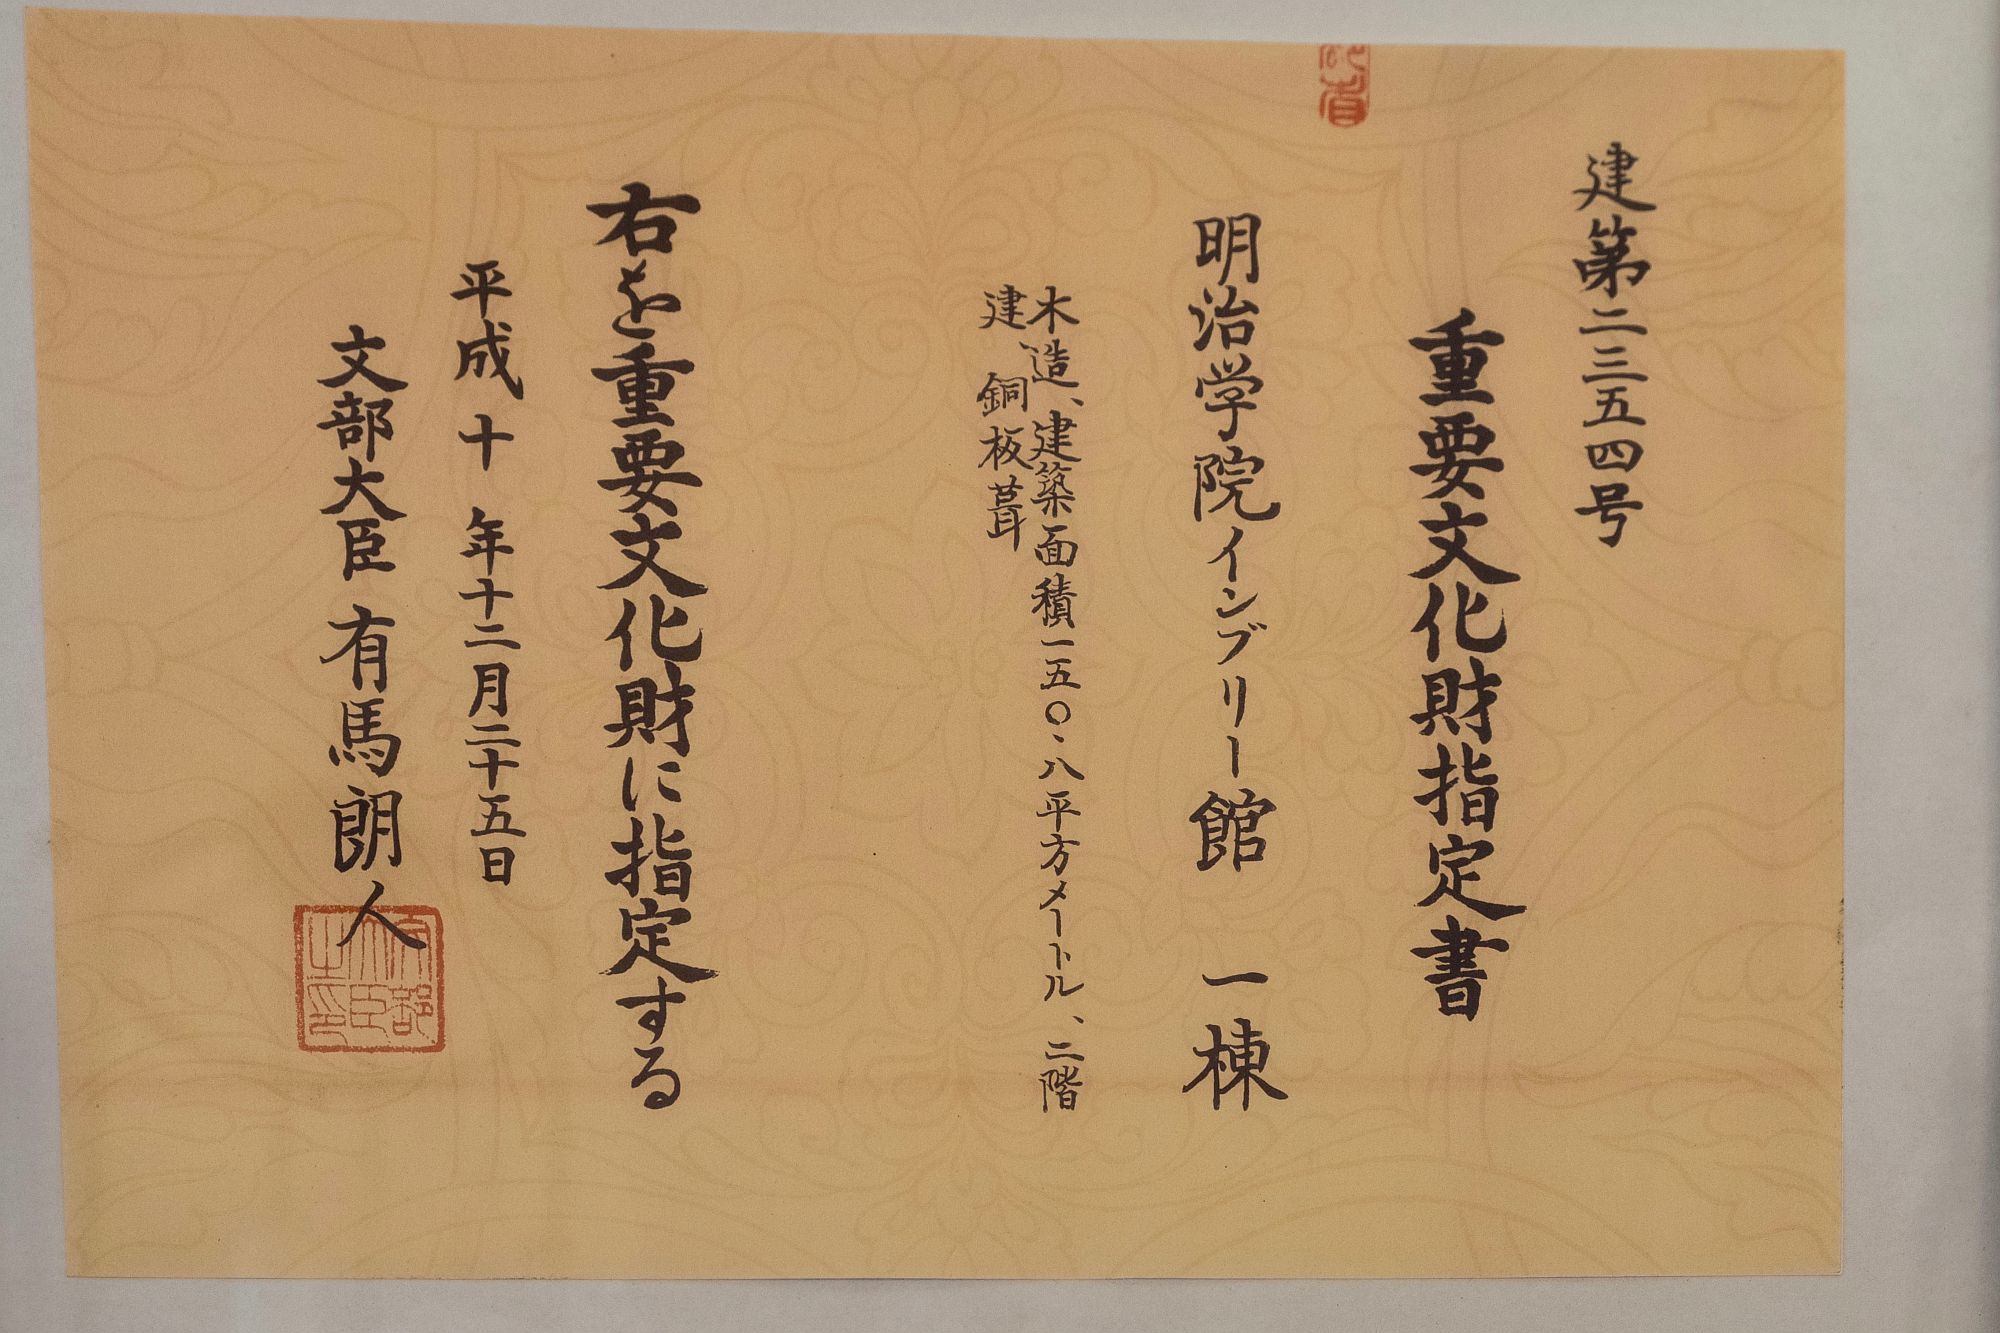 建第二三五四号
重要文化財指定書
明治学院インブリー館 一棟
木造、建築面積一五〇・八平方メートル、二階
建、銅板葺
右を重要文化財に指定する
平成十年十二月二十五日
文部大臣 有馬朗人
文部大臣之印